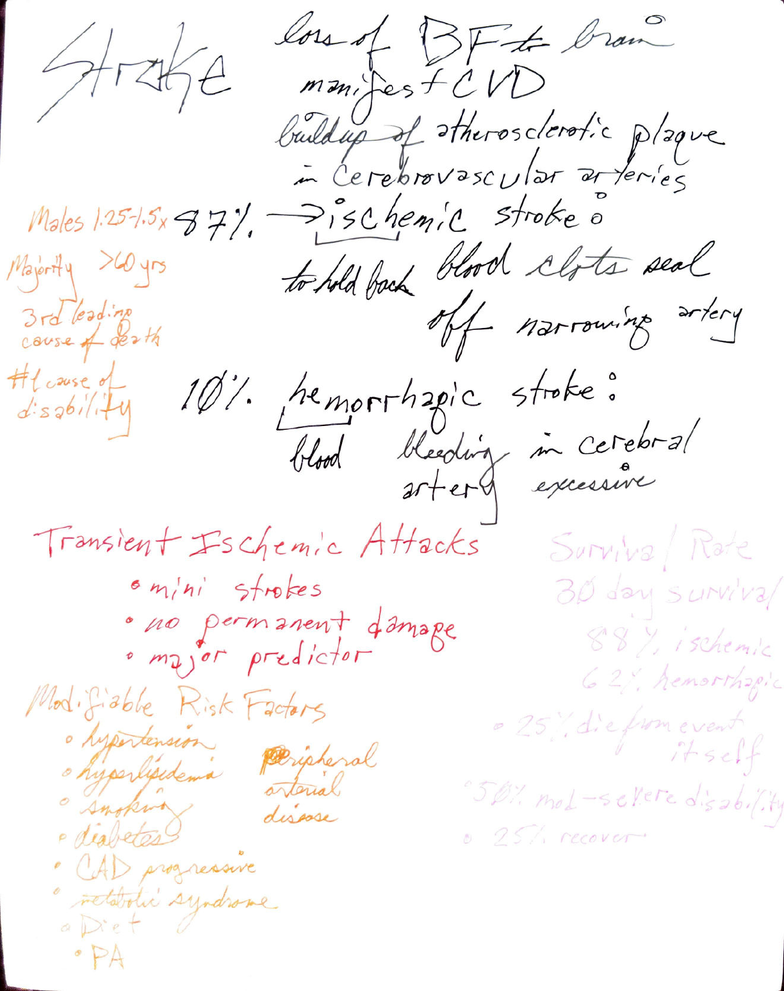 Stroke
loss of BF to brain
manifest CVD
buildup of atherosclerotic plaque
in cerebrovascular arteries
Males 1.25-1.5x
Majority >60 yrs
3rd leading
cause of death
#1 cause of
disability
87% → ischemic stroke:
to hold back blood clots seal
off narrowing artery
10% hemorrhagic stroke:
blood bleeding in cerebral
artery excessive
Transient Ischemic Attacks
• mini strokes
• no permanent damage
• major predictor
Survival Rate
30 day survival
88% ischemic
62% hemorrhagic
• 25% die from event
itself
• 50% mod-severe disability
• 25% recover
Modifiable Risk Factors
• hypertension
• hyperlipidemia
• smoking
• diabetes
• CAD progressive
• metabolic syndrome
• Diet
• PA
peripheral
arterial
disease